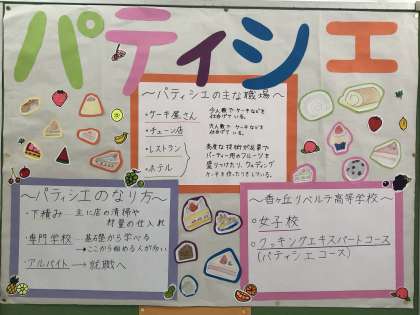 パティシエ
〜パティシエの主な職場〜
・ケーキ屋さん 少人数でケーキなどを
仕上げている。
・チェーン店 大人数でケーキなどを
仕上げている。
・レストラン
・ホテル
高度な技術が必要で
パーティー用のフルーツを
盛りつけたり、ウェディング
ケーキを作ったりしている。
〜パティシエのなり方〜
・下積み 主に店の清掃や
材量の仕入れ
・専門学校…基礎から学べる
→ここから始める人が多い
・アルバイト→就職へ
〜香ヶ丘リベルテ高等学校〜
○女子校
○クッキングエキスパートコース
(パティシエコース)